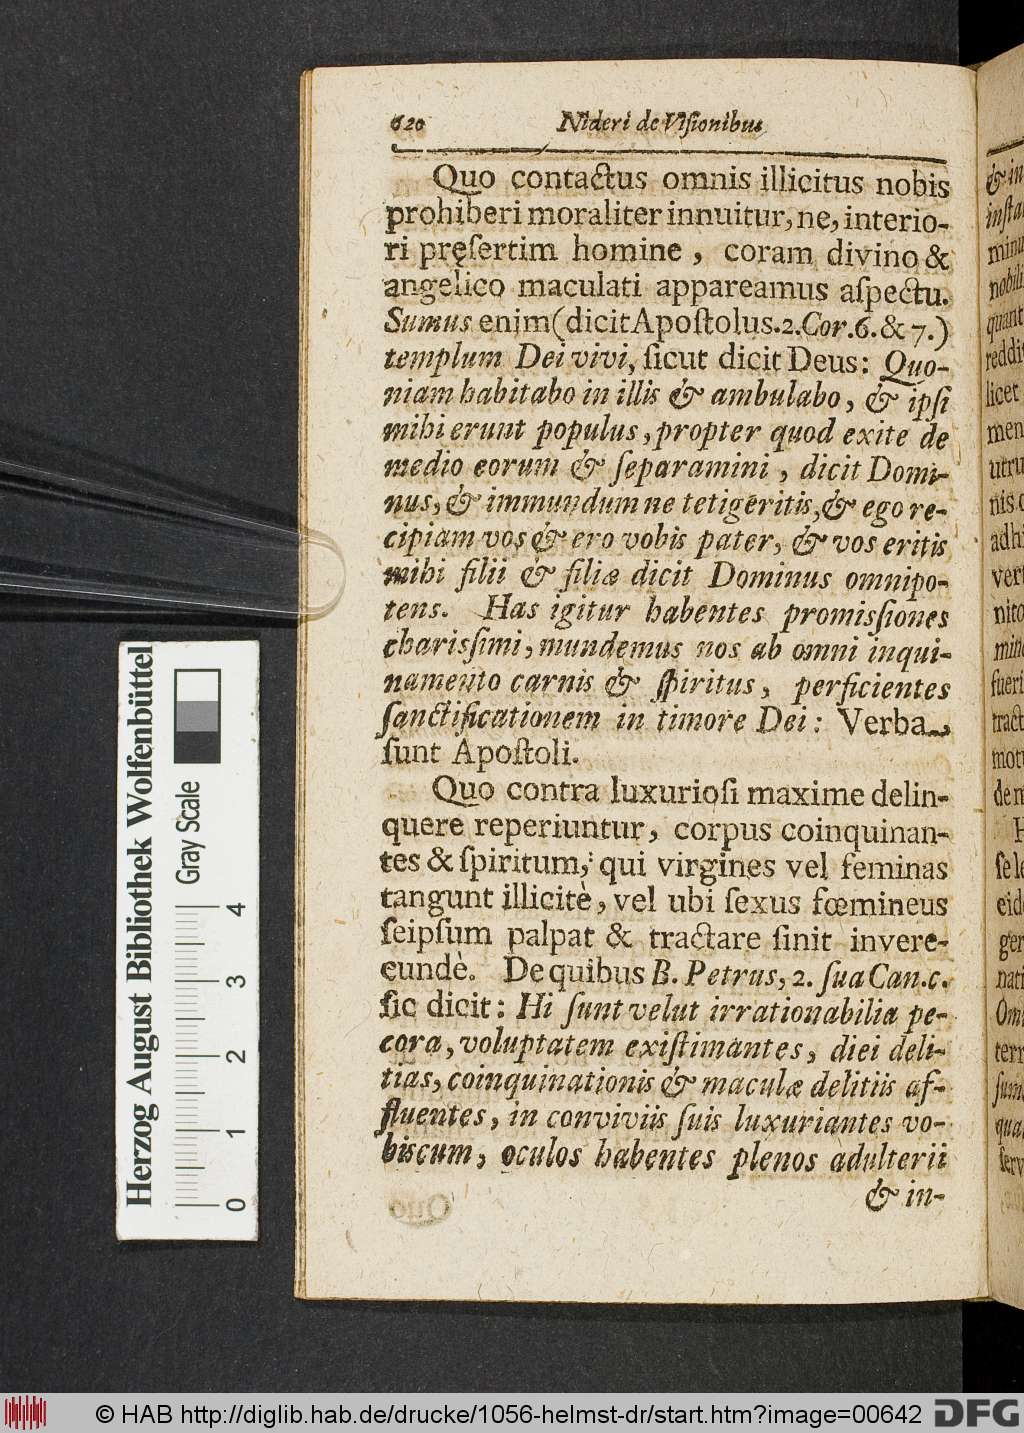 620 Nideri de Viſionibus
Quo contactus omnis illicitus nobis
prohiberi moraliter innuitur, ne, interio-
ri pręſertim homine, coram divino &
angelico maculati appareamus aſpectu.
Sumus enim (dicit Apoſtolus. 2. Cor. 6. & 7.)
templum Dei vivi, ſicut dicit Deus: Quo-
niam habitabo in illis & ambulabo, & ipſi
mihi erunt populus, propter quod exite de
medio eorum & ſeparamini, dicit Domi-
nus, & immundum ne tetigeritis, & ego re-
cipiam vos & ero vobis pater, & vos eritis
mihi filii & filiæ dicit Dominus omnipo-
tens. Has igitur habentes promisſiones
charisſimi, mundemus nos ab omni inqui-
namento carnis & ſpiritus, perficientes
ſanctificationem in timore Dei: Verba
ſunt Apoſtoli.
Quo contra luxurioſi maxime delin-
quere reperiuntur, corpus coinquinan-
tes & ſpiritum, qui virgines vel feminas
tangunt illicitè, vel ubi ſexus fœmineus
ſeipſum palpat & tractare ſinit invere-
cundè. De quibus B. Petrus, 2. ſua Can. c.
ſic dicit: Hi ſunt velut irrationabilia pe-
cora, voluptatem exiſtimantes, diei deli-
tias, coinquinationis & maculæ delitiis af-
fluentes, in conviviis ſuis luxuriantes vo-
biscum, oculos habentes plenos adulterii
& in-
Herzog August Bibliothek Wolfenbüttel
Gray Scale
0 1 2 3 4
© HAB http://diglib.hab.de/drucke/1056-helmst-dr/start.htm?image=00642
DFG